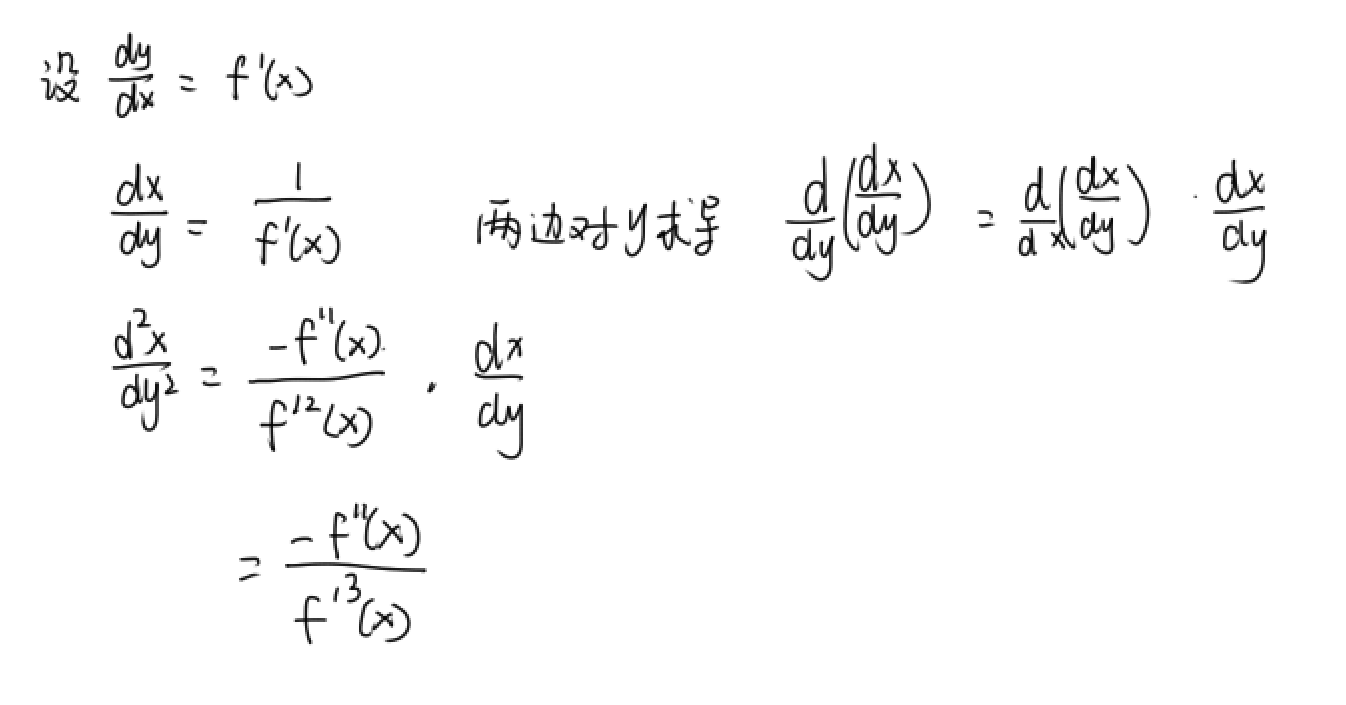 设 dy/dx = f'(x)
dx/dy = 1/f'(x) 两边对y求导 d/dy(dx/dy) = d/dx(dx/dy) · dx/dy
d²x/dy² = -f''(x)/f'²(x) · dx/dy
= -f''(x)/f'³(x)